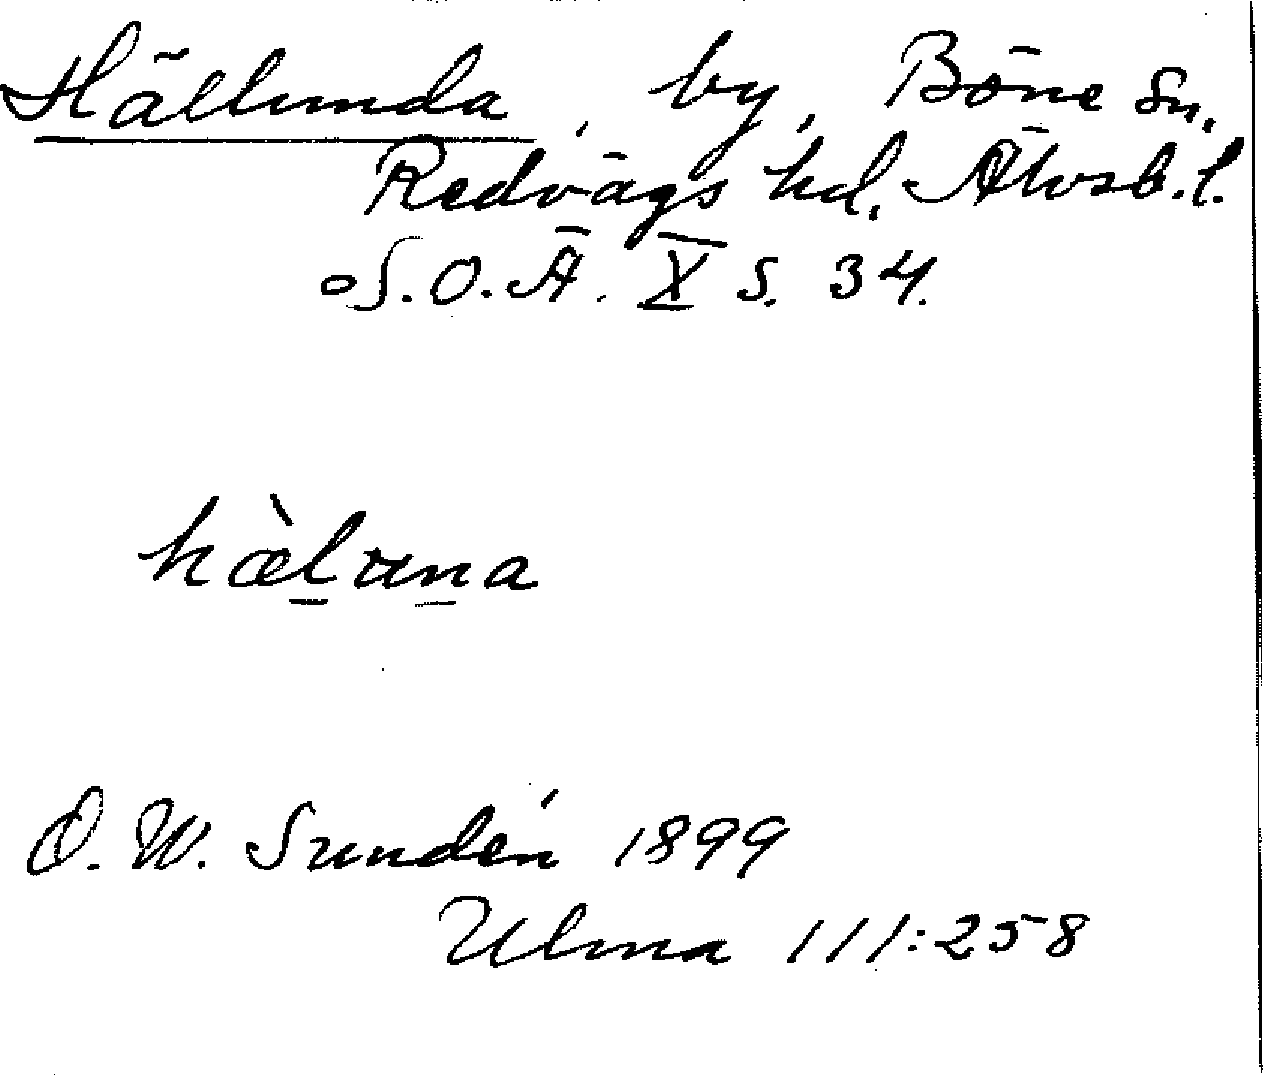 Hällunda, by, Böne sn,
Redvägs hd, Älvsb. l.
S.O.Ä. X s. 34.
hæ̀l̲un̲a
O. W. Sundén 1899
Ulma 111:258